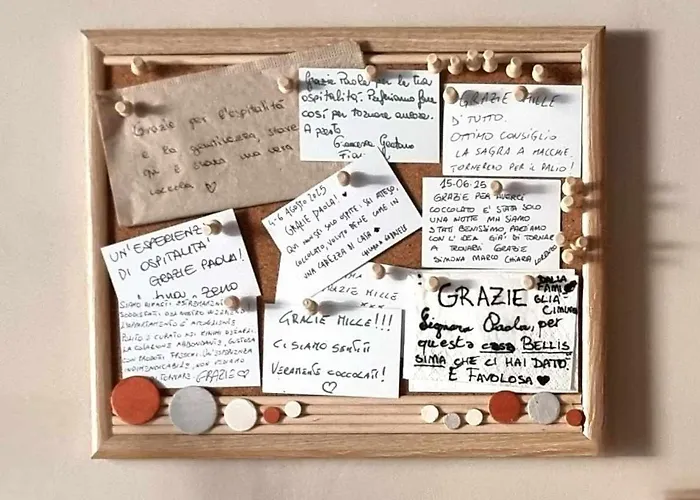 Grazie per l'ospitalità
e la gentilezza, stare
qui è stata una vera
coccola ♡
Grazie Paola per la tua
ospitalità. Preferiamo fare
così per tornare ancora.
A presto
Giacoma Gaetano
GRAZIE MILLE
D' TUTTO.
OTTIMO CONSIGLIO
LA SAGRA A MACCHIE.
TORNEREMO PER IL PALIO!
4-6 AGOSTO 2025
GRAZIE PAOLA! ♥
QUI NON SEI SOLO OSPITE: SEI ATTESO,
COCCOLATO, VOLUTO BENE COME IN
UNA CAREZZA DI CASA ♥
15-06-25
GRAZIE PER AVERCI
COCCOLATO E' STATA SOLO
UNA NOTTE MA SIAMO
STATI BENISSIMO, PARTIAMO
CON L'IDEA GIÀ DI TORNARE
A TROVARVI GRAZIE
SIMONA MARCO CHIARA LORENZO
UN'ESPERIENZA
DI OSPITALITÀ
GRAZIE PAOLA!
SIAMO RIMASTI ESTREMAMENTE
SODDISFATTI DEL NOSTRO
L'APPARTAMENTO È
PULITO E CURATO NEI MINIMI DETTAGLI.
LA COLAZIONE ABBONDANTE, GUSTOSA
CON PRODOTTI FRESCHI. UN'ESPERIENZA
INDIMENTICABILE, NON VEDIAMO
TORNARE. GRAZIE ♡
GRAZIE MILLE
×××
GRAZIE MILLE!!!
CI SIAMO SENTITI
VERAMENTE COCCOLATI!
♡
GRAZIE DALLA
FAMI
GLIA
Signora Paola, per
questa casa BELLIS
SIMA CHE CI HAI DATO.
È FAVOLOSA ♥